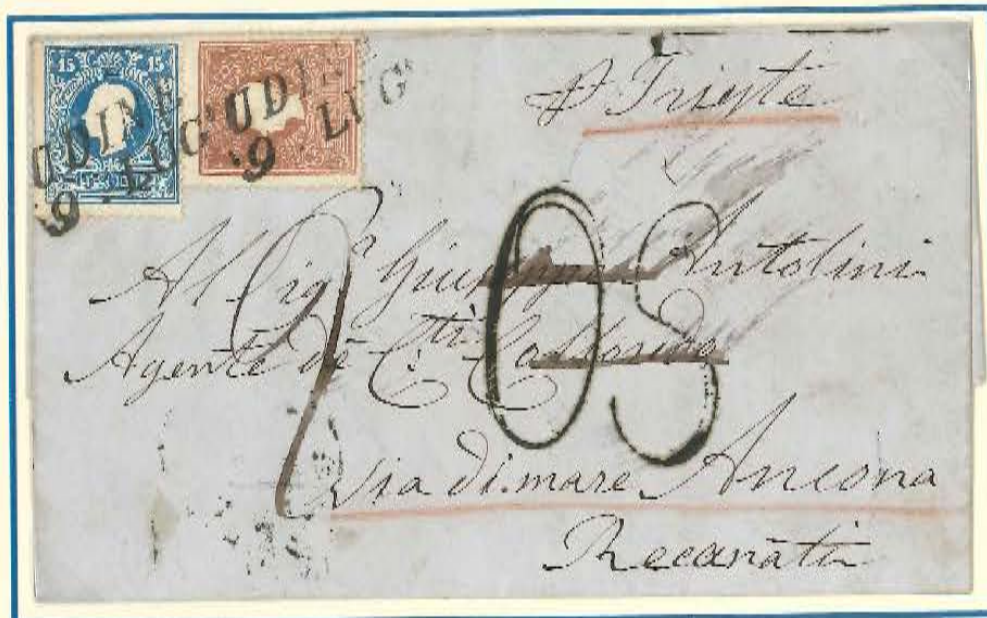 15 15
UDINE
9. LUG
UDI
9. LUG
p Trieste
Al Sigr Giuseppe Antolini
Agente de C.ti
03
via di mare Ancona
Recanati